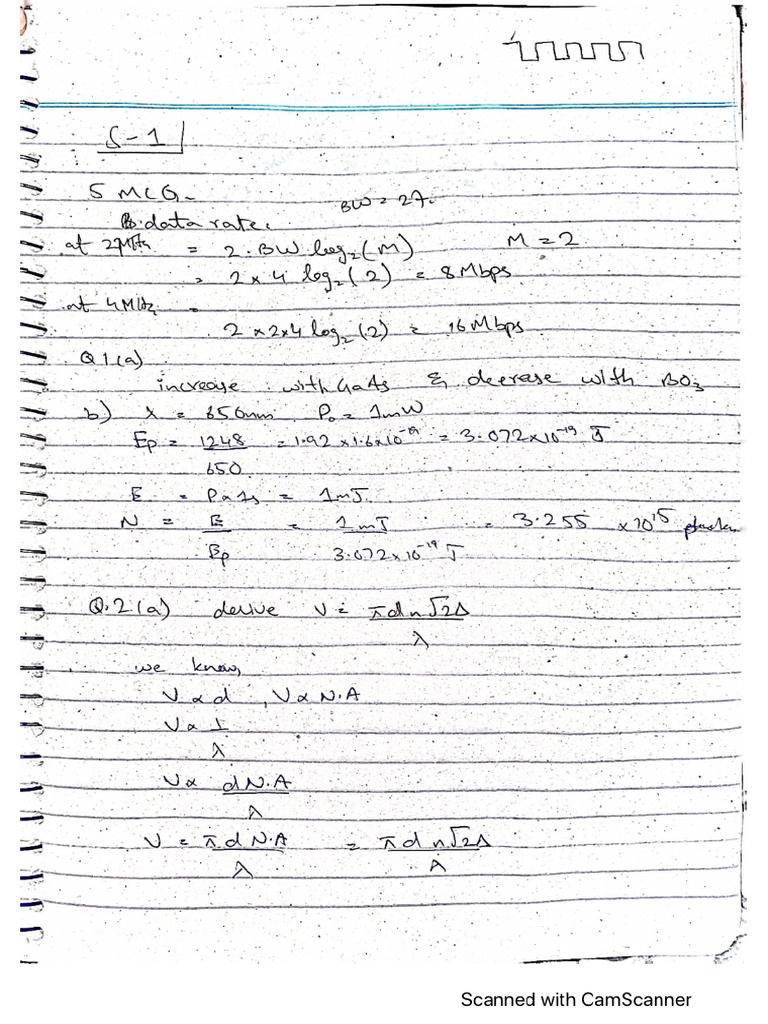 S-1
5 MCQ-
BW = 27.
data rate.
at 2MHz = 2. BW log₂(M) M = 2
= 2 × 4 log₂(2) = 8 Mbps.
at 4MHz =
2 × 2 × 4 log₂(2) = 16 Mbps
Q1(a)
increase : with GaAs & decrease with BO₃
b) λ = 650nm P₀ = 1mW
Ep = 1248/650 = 1.92 × 1.6×10⁻¹⁹ = 3.072×10⁻¹⁹ J
E = P × 1s = 1mJ.
N = E/Ep = 1mJ/3.072×10⁻¹⁹ J = 3.255 × 10¹⁵
Q.2(a) derive V = πdn√2Δ/λ
we know,
V ∝ d , V ∝ N.A
V ∝ 1/λ
V ∝ dN.A/λ
V = πdN.A/λ = πdn√2Δ/λ
Scanned with CamScanner